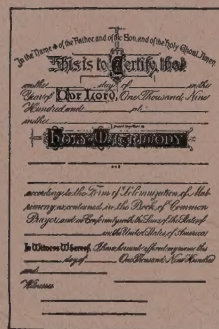 In the Name of the Father, and of the Son, and of the Holy Ghost, Amen
This is to Certify, that
on the day of in the
Year of Our Lord, One Thousand, Nine
Hundred and at
in the
Holy Matrimony
and
according to the Form of Solemnization of Mat-
rimony as contained in the Book of Common
Prayer, and in Conformity with the Laws of the State of
in the United States of America
In Witness Whereof, I have hereunto affixed my name this
day of One Thousand Nine Hundred
and
Witnesses